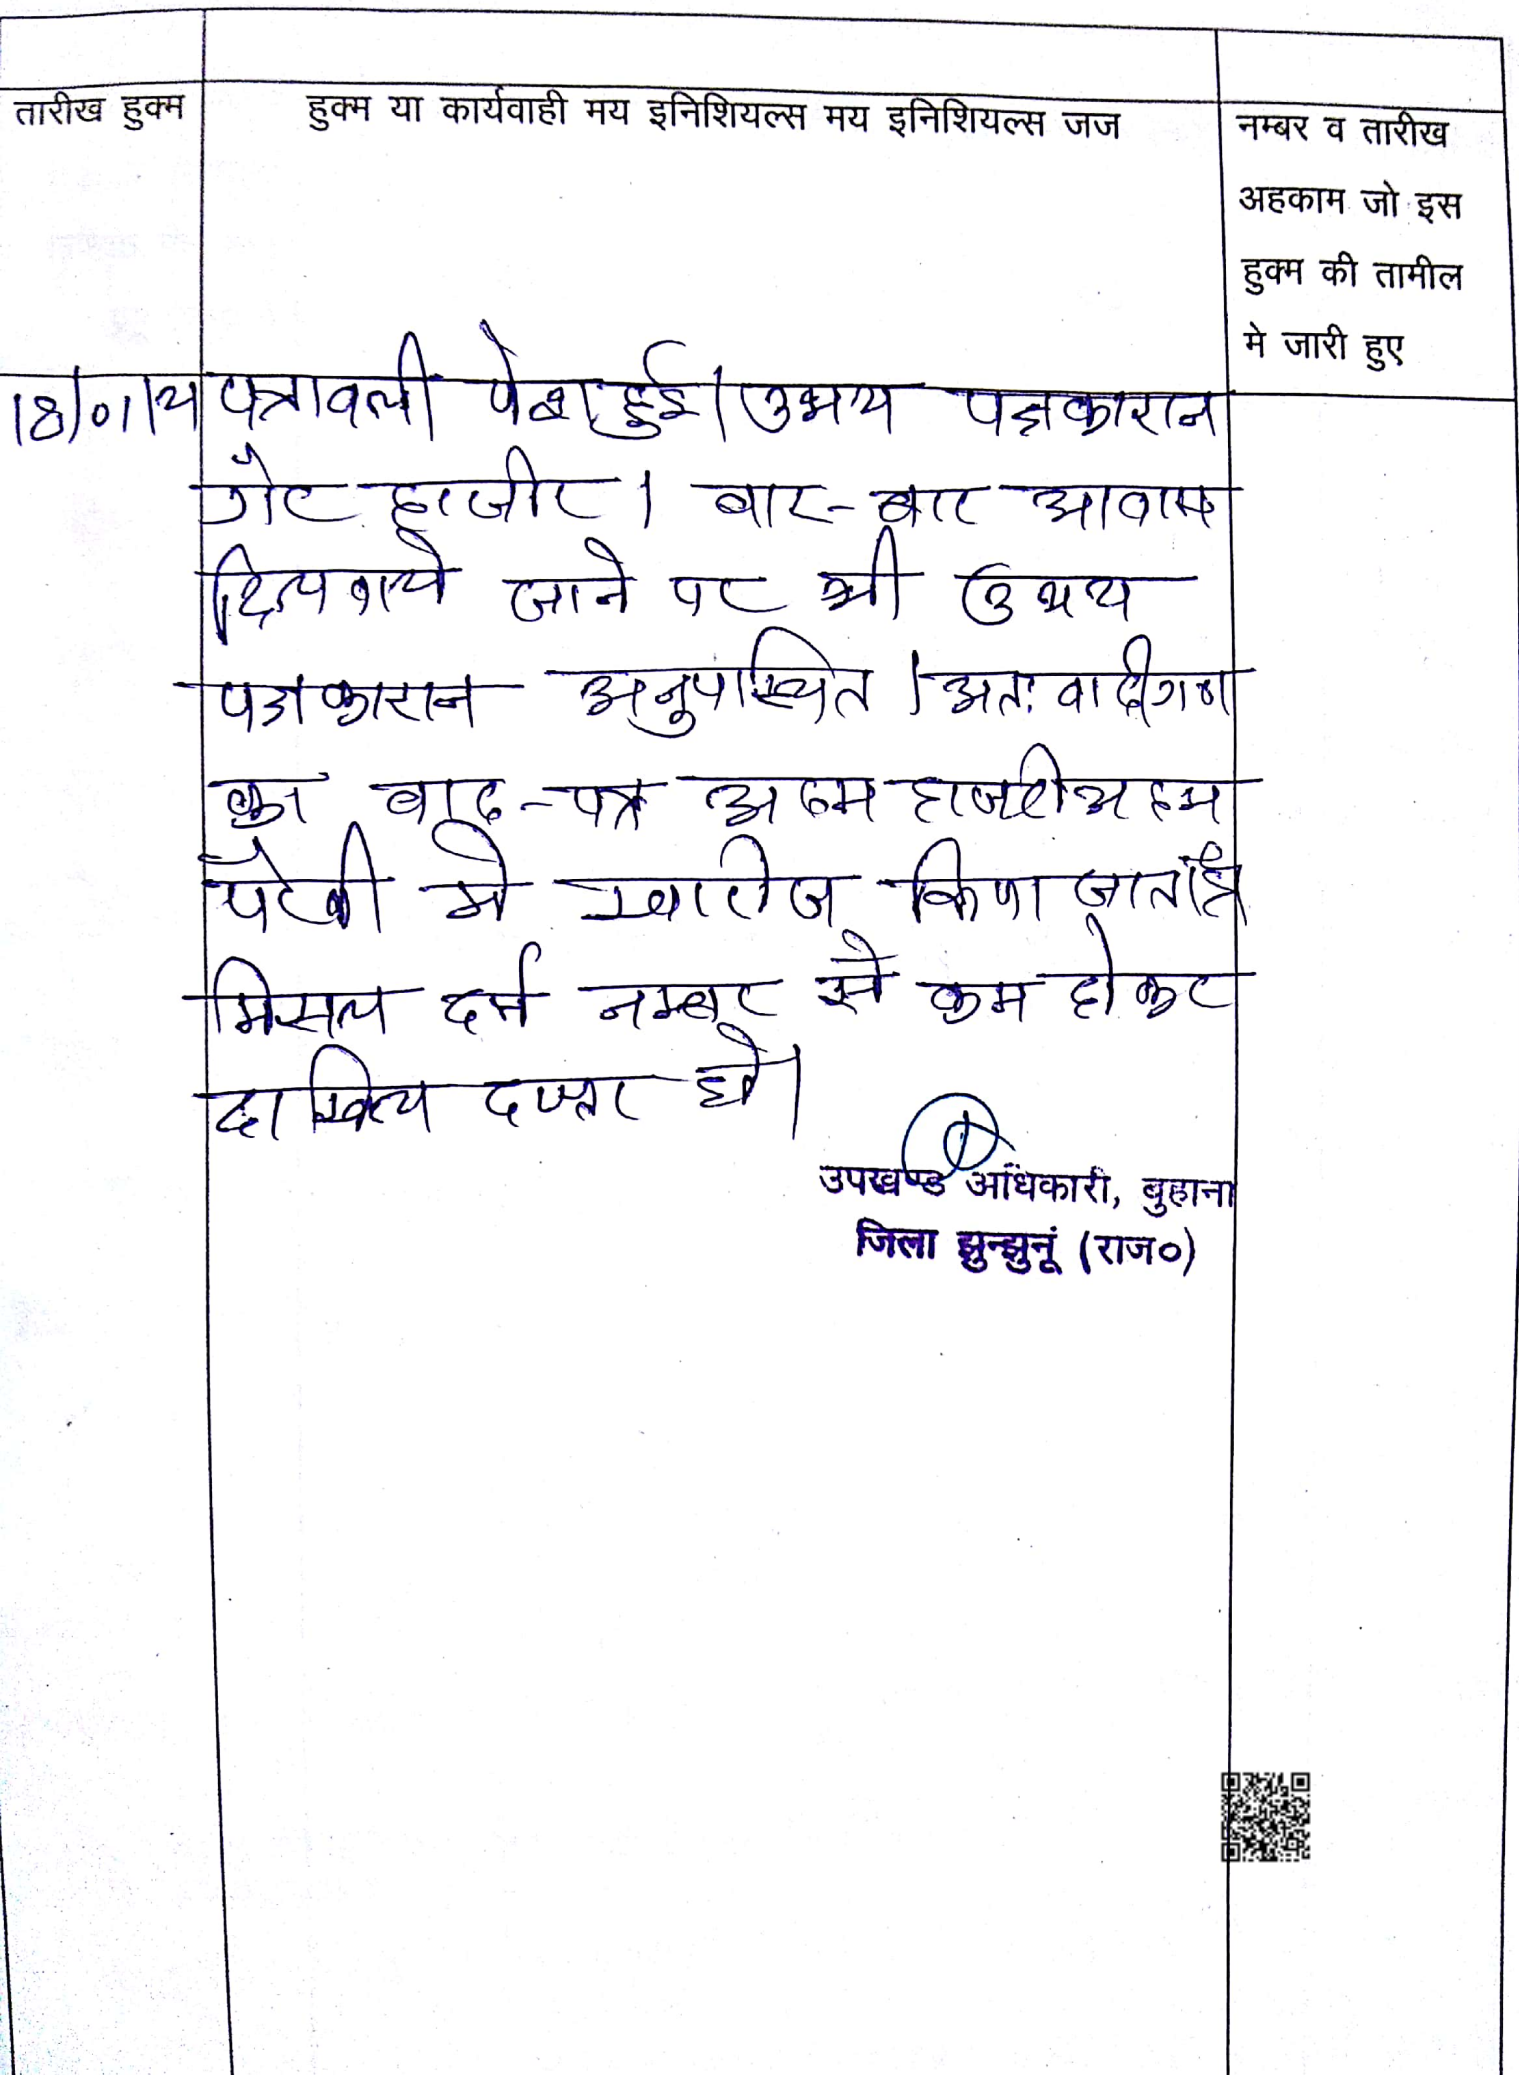 तारीख हुक्म
हुक्म या कार्यवाही मय इनिशियल्स मय इनिशियल्स जज
नम्बर व तारीख
अहकाम जो इस
हुक्म की तामील
मे जारी हुए
18/01/24 पत्रावली पेश हुई। उभय पक्षकारान
गैर हाजीर। बार-बार आवाज
दिलवाये जाने पर भी उभय
पक्षकारान अनुपस्थित। अतः वादीगण
का वाद-पत्र अदम हाजरी अदम
पैरवी मे खारीज किया जाता है
मिसल दर्ज नम्बर से कम होकर
दाखिल दफ्तर हो।
उपखण्ड अधिकारी, बुहाना
जिला झुन्झुनूं (राज०)